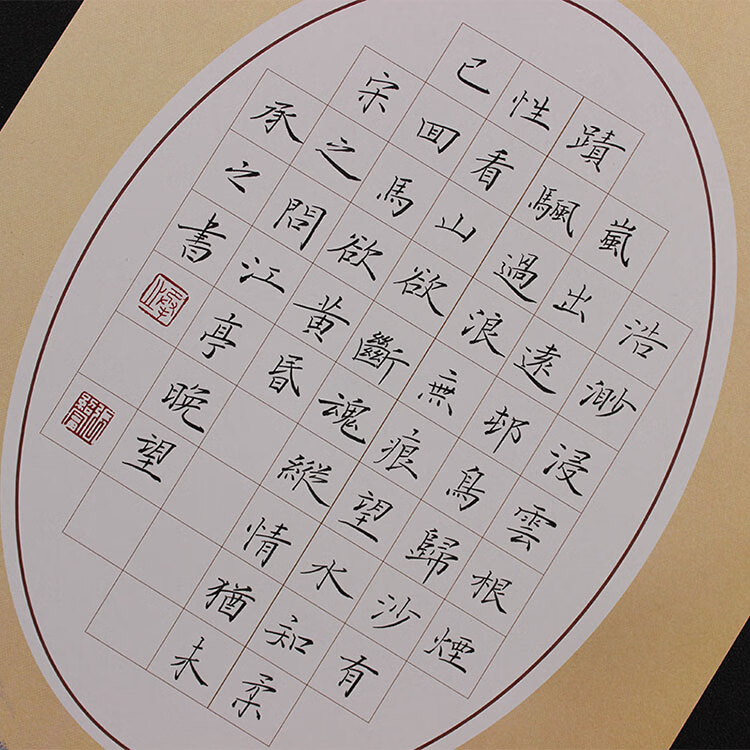 浩渺浸雲根煙
嵐出遠邨鳥歸沙有
蹟颿過浪無痕望水知柔
性看山欲斷魂縱情猶未
已回馬欲黄昏
宋之問江亭晚望
承之書